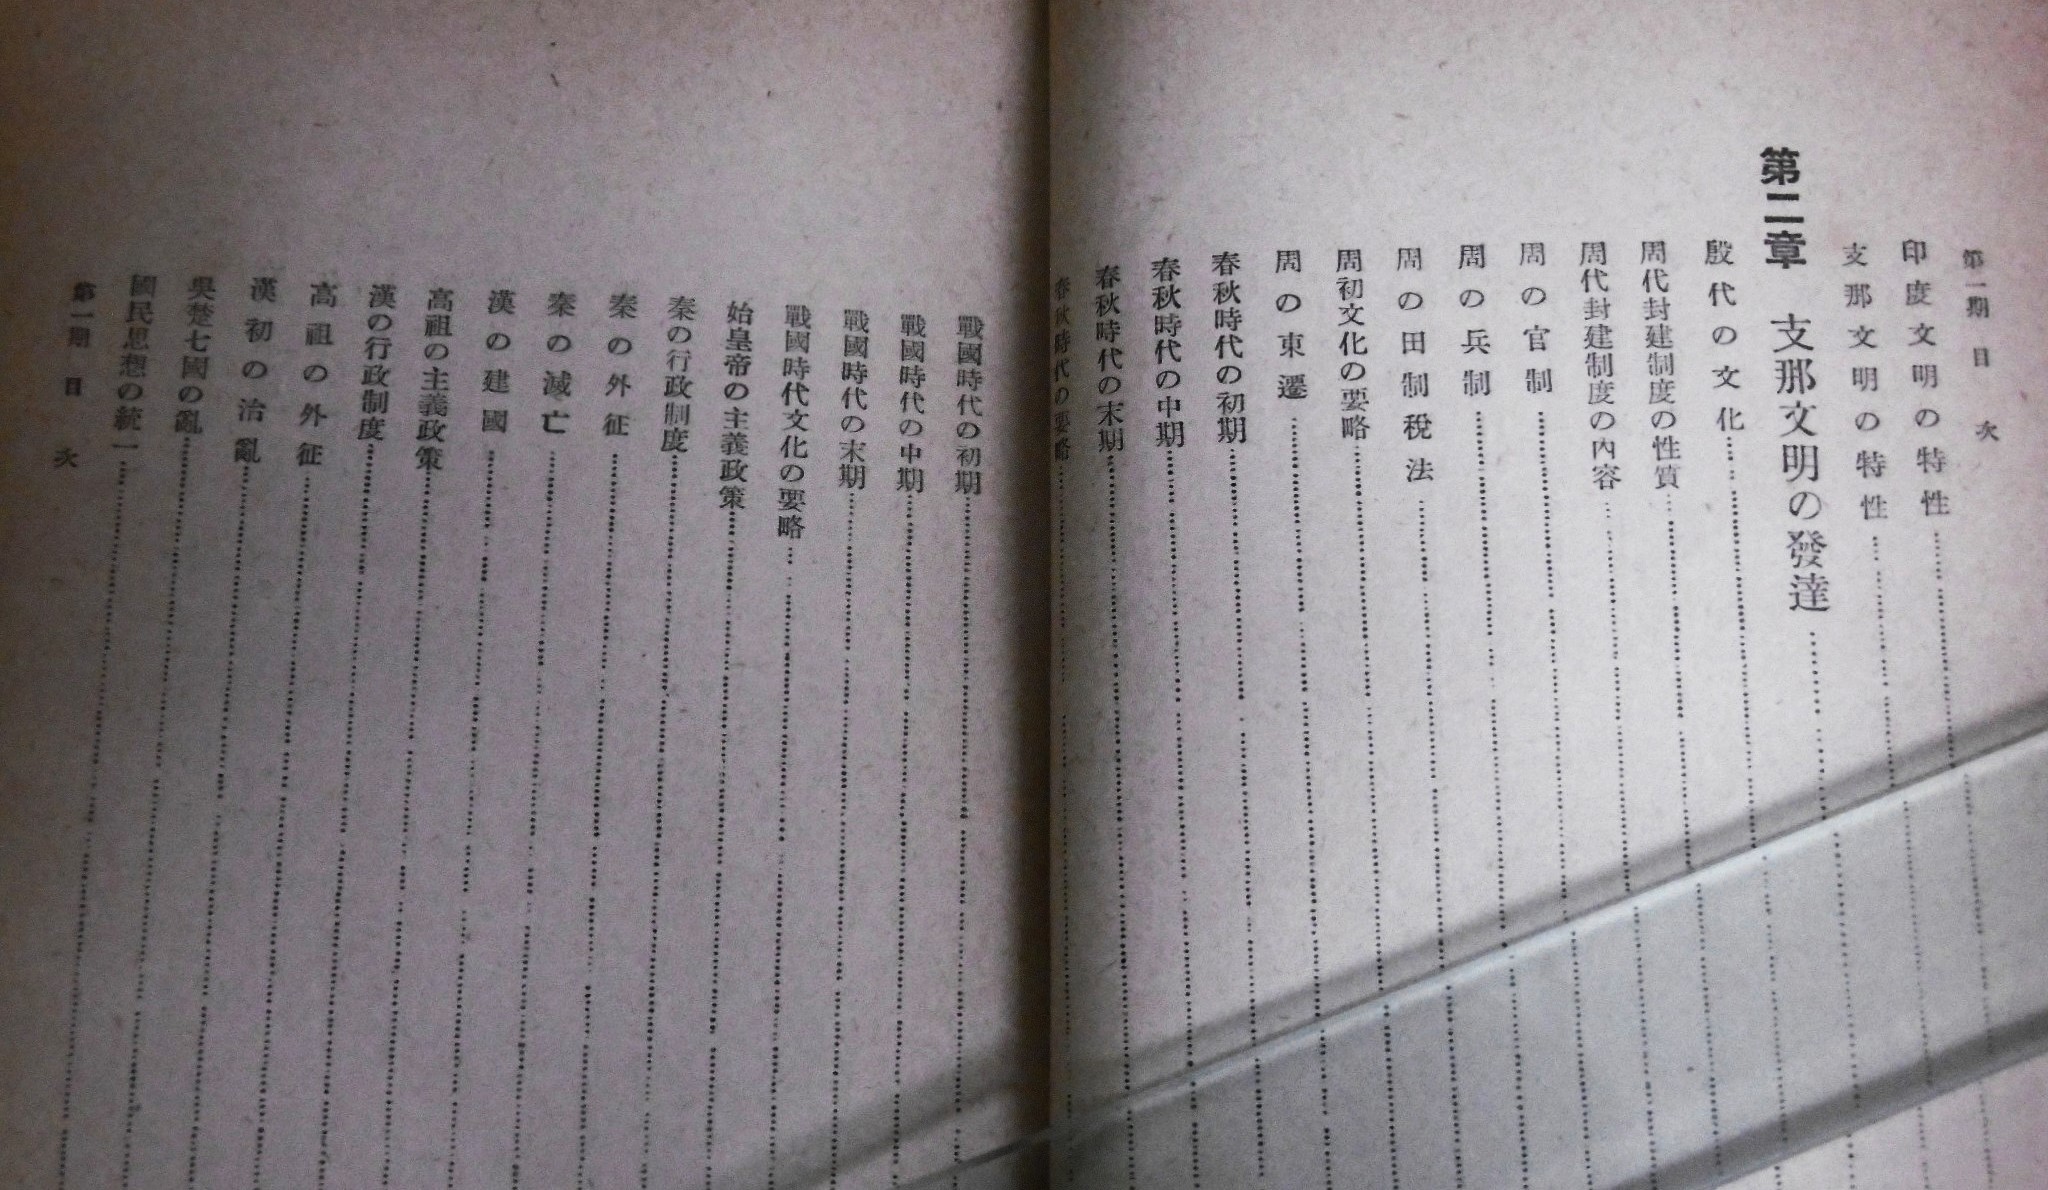 第一期 目次
印度文明の特性
支那文明の特性
第二章 支那文明の發達
殷代の文化
周代封建制度の性質
周代封建制度の內容
周の官制
周の兵制
周の田制稅法
周初文化の要略
周の東遷
春秋時代の初期
春秋時代の中期
春秋時代の末期
春秋時代の要略
戰國時代の初期
戰國時代の中期
戰國時代の末期
戰國時代文化の要略
始皇帝の主義政策
秦の行政制度
秦の外征
秦の滅亡
漢の建國
高祖の主義政策
漢の行政制度
高祖の外征
漢初の治亂
吳楚七國の亂
國民思想の統一
第一期 目次